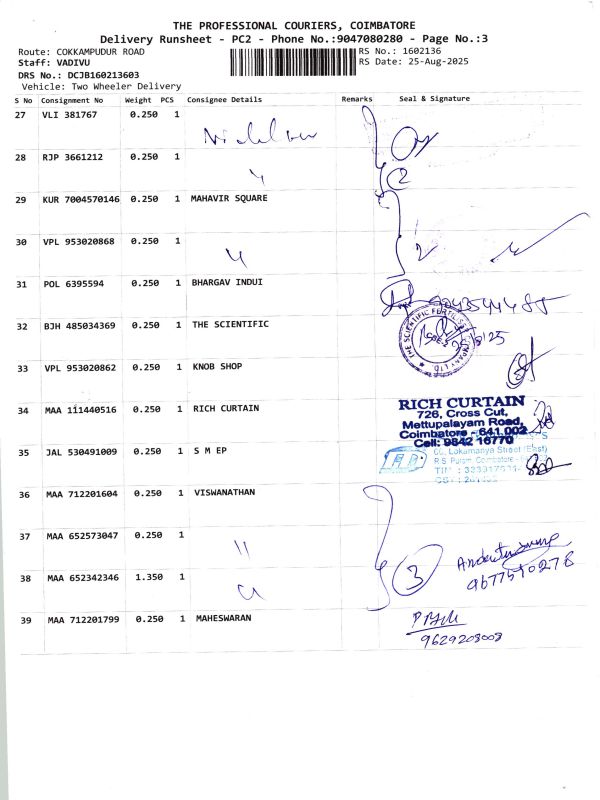 THE PROFESSIONAL COURIERS, COIMBATORE
Delivery Runsheet - PC2 - Phone No.:9047080280 - Page No.:3
Route: COKKAMPUDUR ROAD
RS No.: 1602136
Staff: VADIVU
RS Date: 25-Aug-2025
DRS No.: DCJB160213603
Vehicle: Two Wheeler Delivery
S No Consignment No Weight PCS Consignee Details Remarks Seal & Signature
27 VLI 381767 0.250 1
28 RJP 3661212 0.250 1
2
29 KUR 7004570146 0.250 1 MAHAVIR SQUARE
30 VPL 953020868 0.250 1
2
31 POL 6395594 0.250 1 BHARGAV INDUI
32 BJH 485034369 0.250 1 THE SCIENTIFIC
THE SCIENTIFIC FERTILISER COMPANY LTD
33 VPL 953020862 0.250 1 KNOB SHOP
34 MAA 111440516 0.250 1 RICH CURTAIN
RICH CURTAIN
726, Cross Cut,
Mettupalayam Road,
Coimbatore - 641.002
Cell: 9842 16770
35 JAL 530491009 0.250 1 S M EP
60, Lokamanya Street (East)
R.S. Puram, Coimbatore
36 MAA 712201604 0.250 1 VISWANATHAN
37 MAA 652573047 0.250 1
"
38 MAA 652342346 1.350 1
3
9677510278
39 MAA 712201799 0.250 1 MAHESWARAN
9629208008